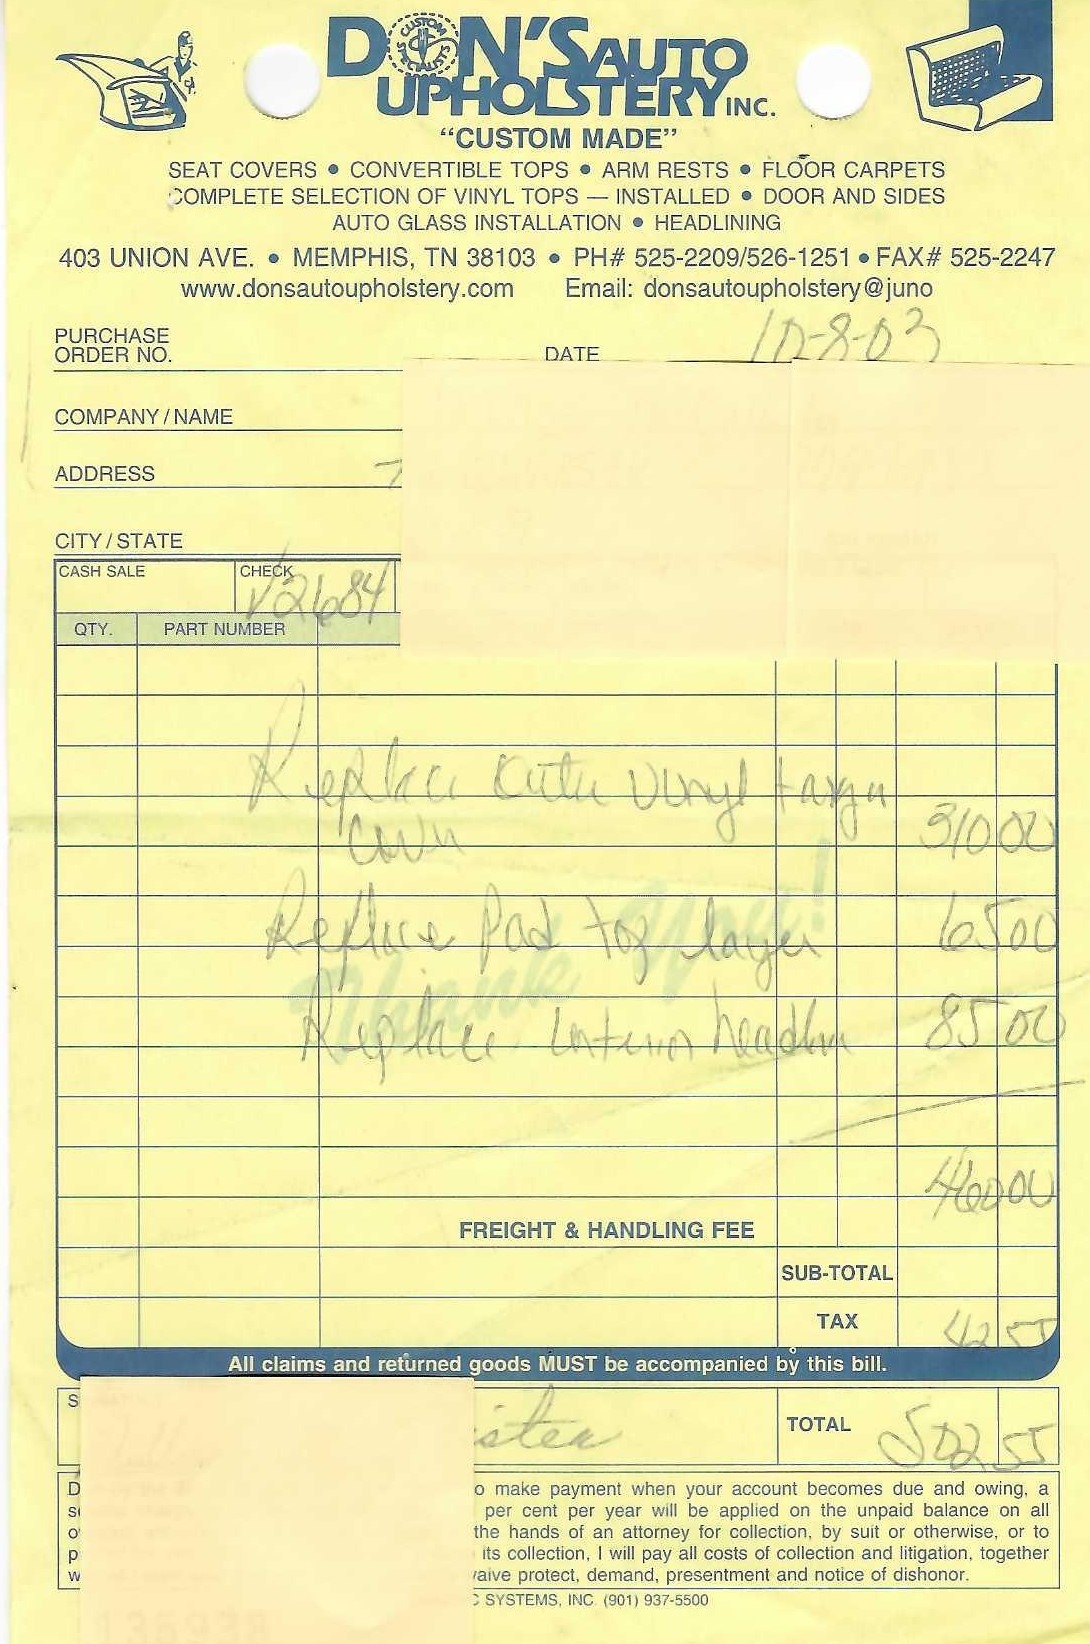 DON'S AUTO
UPHOLSTERY INC.
CUSTOM SPECIALISTS
"CUSTOM MADE"
SEAT COVERS • CONVERTIBLE TOPS • ARM RESTS • FLOOR CARPETS
COMPLETE SELECTION OF VINYL TOPS — INSTALLED • DOOR AND SIDES
AUTO GLASS INSTALLATION • HEADLINING
403 UNION AVE. • MEMPHIS, TN 38103 • PH# 525-2209/526-1251 • FAX# 525-2247
www.donsautoupholstery.com Email: donsautoupholstery@juno
PURCHASE
ORDER NO. DATE 10-8-03
COMPANY / NAME
ADDRESS
CITY / STATE
CASH SALE CHECK √2684
QTY. PART NUMBER
Replace outer vinyl targa
cover 310 00
Replace Pad top layer 65 00
Thank You!
Replace interior headlin 85 00
460 00
FREIGHT & HANDLING FEE
SUB-TOTAL
TAX 42 55
All claims and returned goods MUST be accompanied by this bill.
TOTAL 502 55
o make payment when your account becomes due and owing, a
per cent per year will be applied on the unpaid balance on all
the hands of an attorney for collection, by suit or otherwise, or to
its collection, I will pay all costs of collection and litigation, together
aive protect, demand, presentment and notice of dishonor.
C SYSTEMS, INC. (901) 937-5500